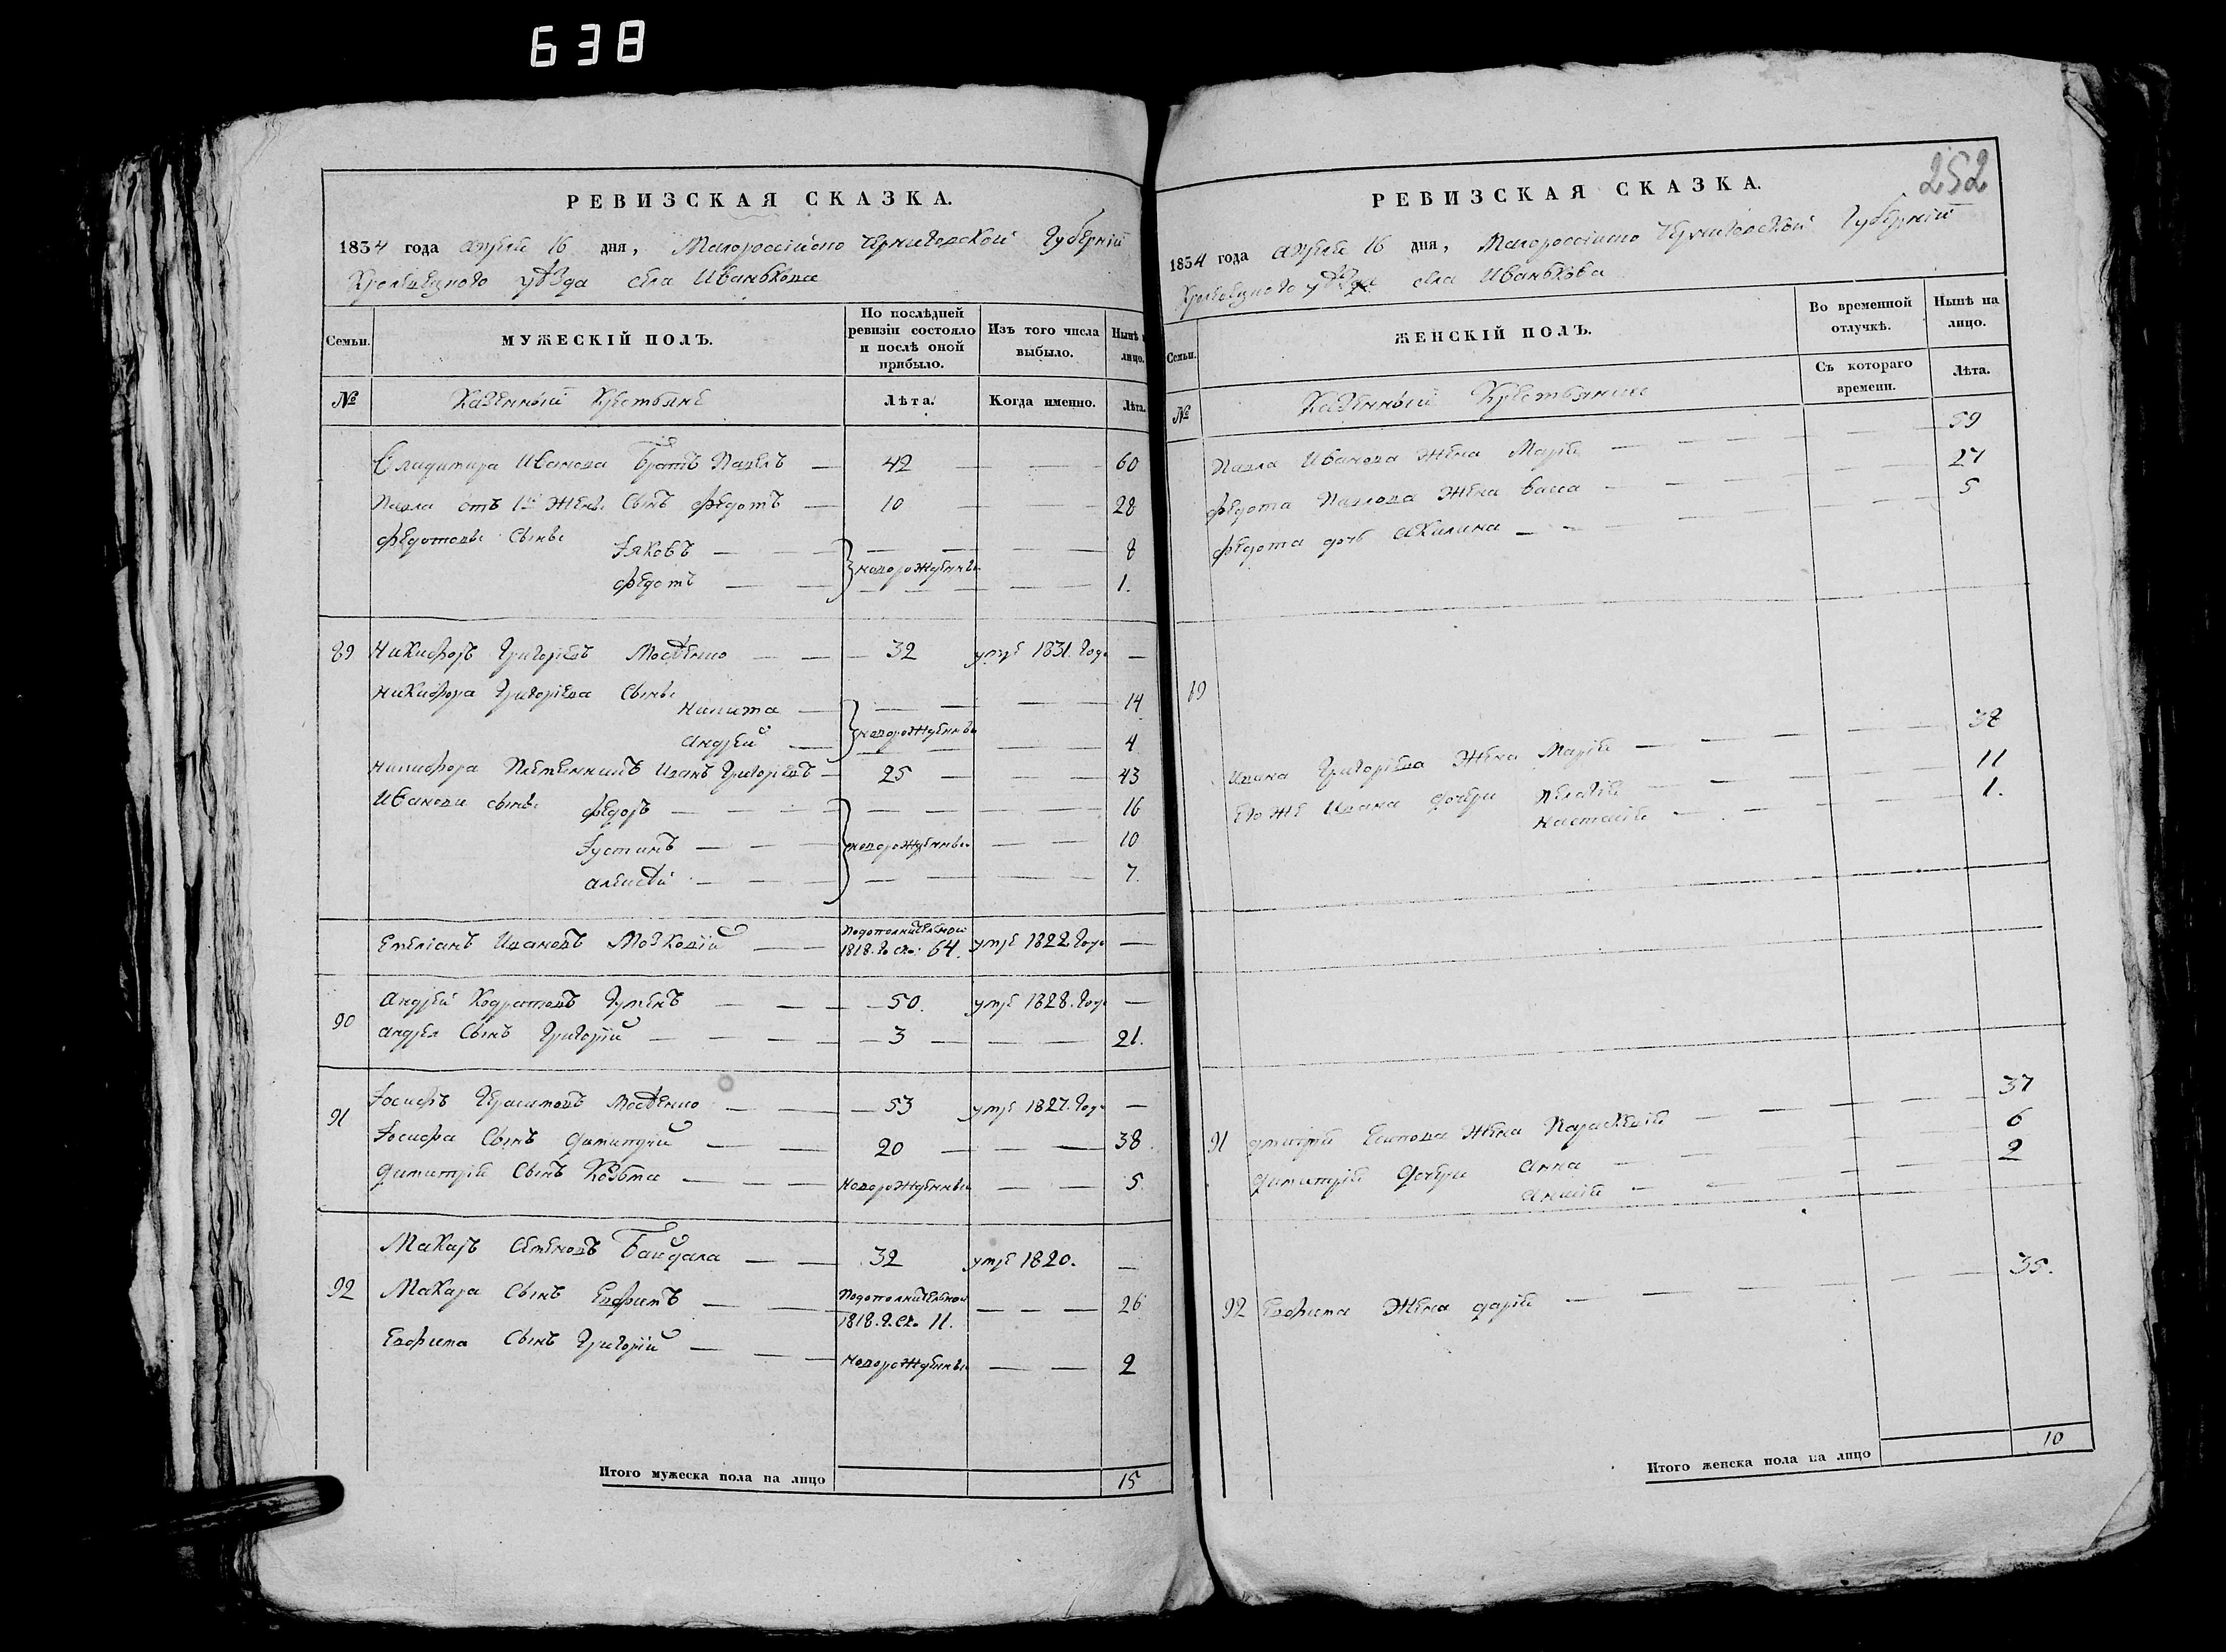 638
РЕВИЗСКАЯ СКАЗКА.
1834 года апреля 16 дня, Малороссійско Черниговской Губерніи
Кролевецкого уѣзда села Иванькова
Семьи. МУЖЕСКІЙ ПОЛЪ. По послѣдней ревизіи состояло и послѣ оной прибыло. Изъ того числа выбыло. Нынѣ на лицо.
№ Казенныи Крестьяне Лѣта. Когда именно. Лѣта.
Владимира Иванова Братъ Павелъ — 42 — — 60
Павла отъ 1й жены Сынъ Федотъ — 10 — — 28
Федотовы Сыны Іяковъ — — — — 8
новорожденны
Федотъ — — — — 1.
89 Никифоръ Григорьевъ Мосѣенко — — 32 умре 1831. Года —
Никифора Григорьева Сыны
Никита — — — 14
новорожденны
Андрей — — — 4
Никифора Племенникъ Иванъ Григорьевъ — 25 — — 43
Иванова сыны Федоръ — — — — 16
Іустинъ — — новорожденны — — 10
Алексѣй — — — — 7.
Емеліанъ Ивановъ Мозковій — — Подополнительной 1818. Го ска: 64. умре 1822 Года —
90 Андрей Кодратовъ Гуменъ — — — 50. умре 1828. Года —
Андрея Сынъ Григорій — — — 3 — — 21.
91 Іосифъ Герасимовъ Мосѣенко — — 53 умре 1827. Года —
Іосифа Сынъ Димитрій — — 20 — — 38.
Димитрія Сынъ Козьма — — — Новорожденны — — 5.
92 Макаръ Семеновъ Байдала — — 32 умре 1820. —
Макара Сынъ Евфимъ — — Подополнительной 1818. Г. ск. 11. — — 26
Евфима Сынъ Григорій — — — Новорожденны — — 2
Итого мужеска пола на лицо 15
252
РЕВИЗСКАЯ СКАЗКА.
1834 года апреля 16 дня, Малороссійско Черниговской Губерніи
Кролевецкого уѣзда села Иванькова
Семьи. ЖЕНСКІЙ ПОЛЪ. Во временной отлучкѣ. Нынѣ на лицо.
№ Казенныи Крестьянки Съ котораго времени. Лѣта.
Павла Иванова Жена Марія — — — 59
Федота Павлова Жена Васса — — — 27
Федота дочь Акилина — — — 5
89
Ивана Григорьева Жена Марія — — — 38
Его же Ивана дочери Пелагія — — — 11
Настасія — — — 1.
91 Дмитрія Есипова Жена Параскевія — — — 37
Димитрія Дочери Анна — — — 6
Анисія — — — 2
92 Евфима Жена Дарія — — — 35.
Итого женска пола на лицо 10